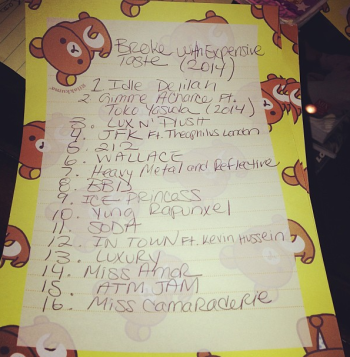 Broke With Expensive
Taste (2014)
1. Idle Delilah
2. Gimme A Chance Ft.
Toko Yasuda (2014)
3. LUX N' PYUSH
4. JFK Ft. Theophilus London
5. 212
6. WALLACE
7. Heavy Metal and Reflective
8. BBD
9. ICE PRINCESS
10. Yung Rapunxel
11. SODA
12. IN TOWN Ft. Kevin Hussein
13. LUXURY
14. Miss Amor
15. ATM JAM
16. Miss Camaraderie